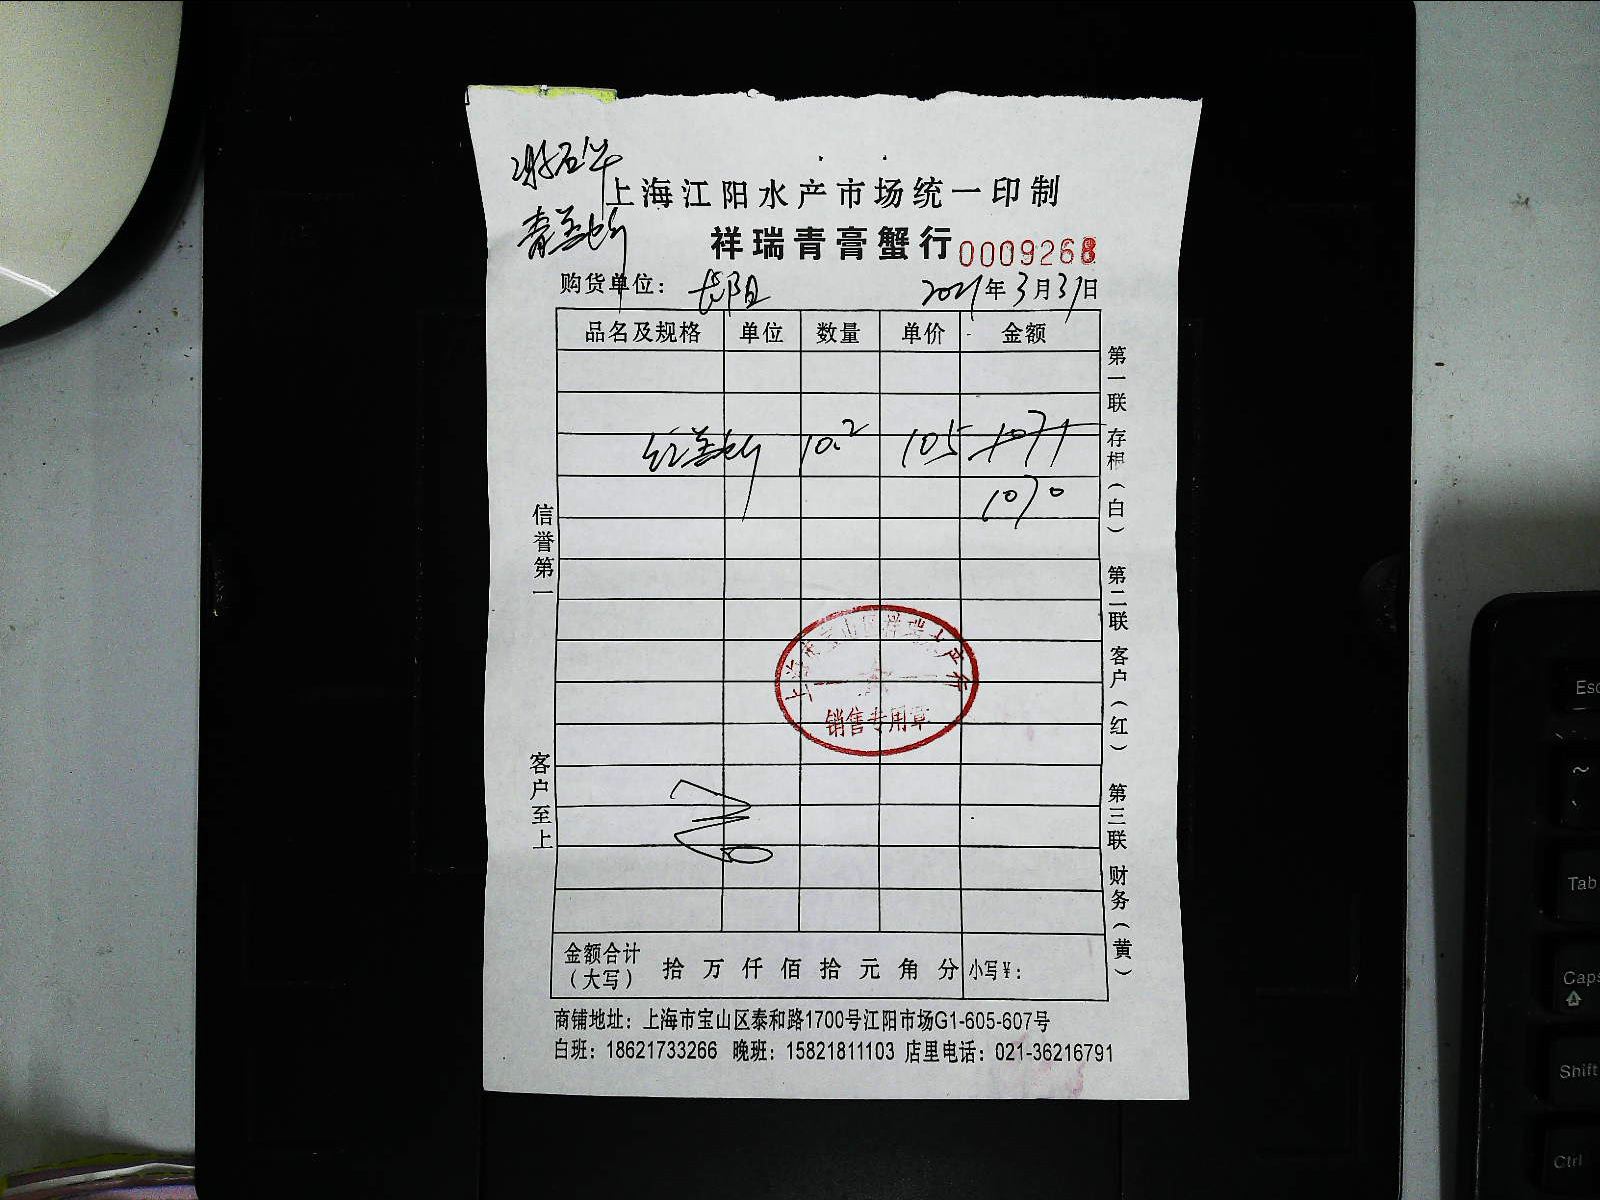 上海江阳水产市场统一印制
祥瑞青膏蟹行 0009268
购货单位： 长阳 2021年3月31日
品名及规格 单位 数量 单价 金额
10.2 105 1071
1070
信誉第一
客户至上
第一联 存根（白） 第二联 客户（红） 第三联 财务（黄）
上海市宝山区祥瑞水产行
销售专用章
金额合计（大写） 拾 万 仟 佰 拾 元 角 分 小写¥：
商铺地址：上海市宝山区泰和路1700号江阳市场G1-605-607号
白班：18621733266 晚班：15821811103 店里电话：021-36216791
Esc
~
Tab
Caps
Shift
Ctrl